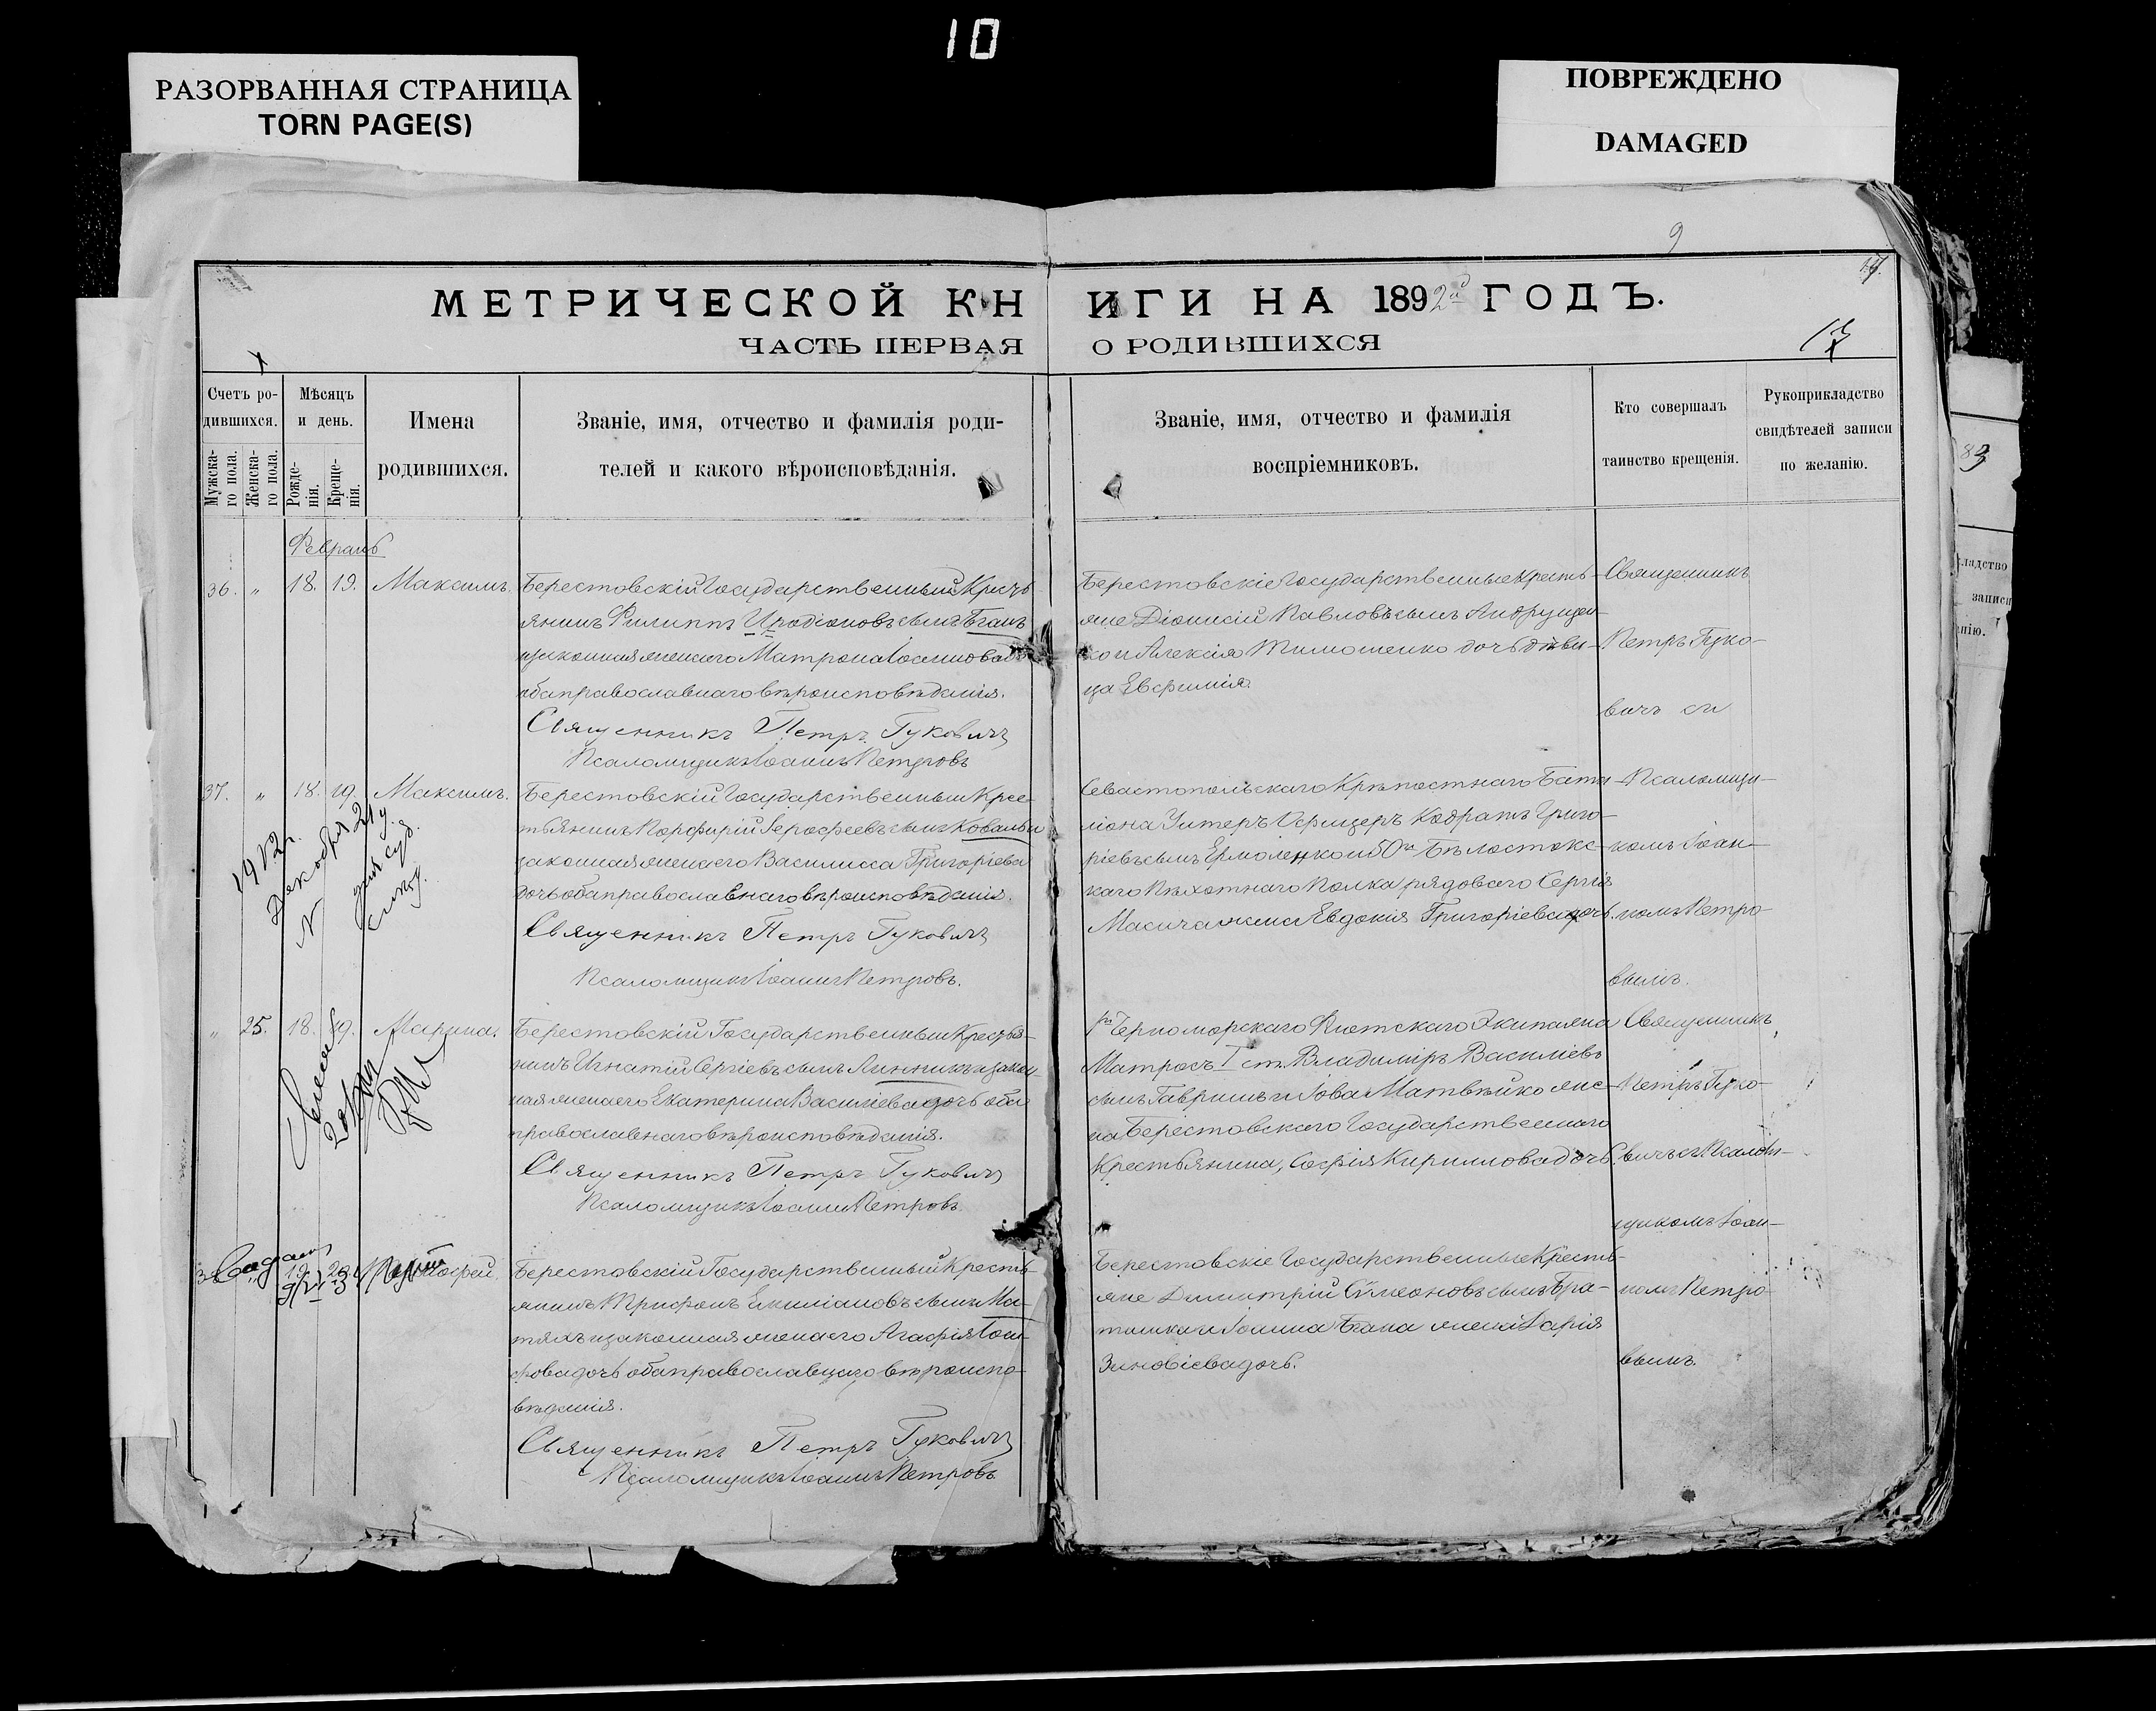 10
РАЗОРВАННАЯ СТРАНИЦА
TORN PAGE(S)
ПОВРЕЖДЕНО
DAMAGED
9
МЕТРИЧЕСКОЙ КНИГИ НА 1892й ГОДЪ.
ЧАСТЬ ПЕРВАЯ О РОДИВШИХСЯ
13
Счетъ ро-
дившихся.
Мужска-
го пола.
Женска-
го пола.
Мѣсяцъ
и день.
Рожде-
нія.
Креще-
нія.
Имена
родившихся.
Званіе, имя, отчество и фамилія роди-
телей и какого вѣроисповѣданія.
Званіе, имя, отчество и фамилія
воспріемниковъ.
Кто совершалъ
таинство крещенія.
Рукоприкладство
свидѣтелей записи
по желанію.
Февраль
36. " 18. 19. Максимъ.
Берестовскій Государственный Кресть
янинъ Филиппъ Иродіоновъ сынъ Беганъ
и законная жена его Матрона Іоаннова
оба православнаго вѣроисповѣданія.
Священникъ Петръ Гуковичъ
Псаломщикъ Іоаннъ Петровъ
Берестовскіе Государственные Кресть-
яне Діонисій Павловъ сынъ Андрущен-
ко и Алексія Тимошенко дочь дѣви-
ца Евфимія.
Священникъ
Петръ Гуко-
вичъ съ
37. " 18. 19. Максимъ.
Берестовскій Государственный Крес-
тьянинъ Порфирій Іерофеевъ сынъ
законная жена его Василисса Григоріева
дочь оба православнаго вѣроисповѣданія.
Священникъ Петръ Гуковичъ
Псаломщикъ Іоаннъ Петровъ.
Севастопольскаго Крѣпостнаго Бата-
ліона Унтеръ Офицеръ Кодратъ Григо-
ріевъ сынъ Ермоленко и 50го Бѣлостокс-
каго Пѣхотнаго Полка рядоваго Сергія
жена Евдокія Григоріева дочь.
Псаломщи-
комъ Іоан-
номъ Петро-
вымъ.
1912 г.
Декабря 21 у.
" 25. 18. 19. Марина.
Берестовскій Государственный Крестья-
нинъ Игнатій Сергіевъ сынъ Линникъ и закон-
ная жена его Екатерина Василіева дочь оба
православнаго вѣроисповѣданія.
Священникъ Петръ Гуковичъ
Псаломщикъ Іоаннъ Петровъ.
Черноморскаго Флотскаго Экипажа
Матросъ I ст. Владиміръ Василіевъ
сынъ Гавришъ и Іова Матвѣйко же-
на Берестовскаго Государственнаго
Крестьянина, Софія Кириллова дочь.
Священникъ
Петръ Гуко-
вичъ съ Псалом-
щикомъ Іоан-
номъ Петро-
вымъ.
19. 20.
Берестовскій Государственный Кресть-
янинъ Трифонъ Емиліановъ сынъ Ма-
тяхъ и законная жена его Агафія Іоси-
фова дочь оба православнаго вѣроиспо-
вѣданія.
Священникъ Петръ Гуковичъ
Псаломщикъ Іоаннъ Петровъ
Берестовскіе Государственные Кресть-
яне Димитрій Симеоновъ сынъ Бра-
тишка и Іоанна Бегана жена Дарія
Зиновіева дочь.